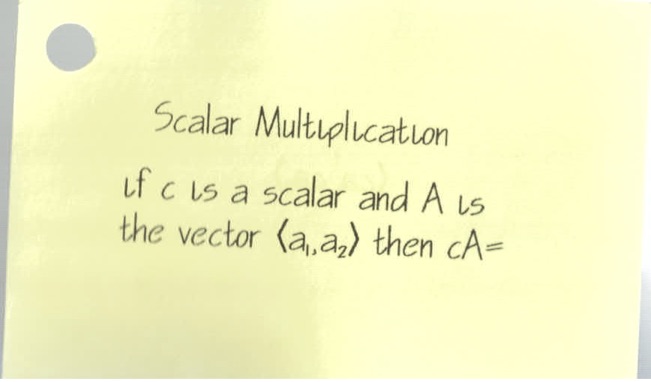 Scalar Multiplication
if c is a scalar and A is
the vector ⟨a₁,a₂⟩ then cA=